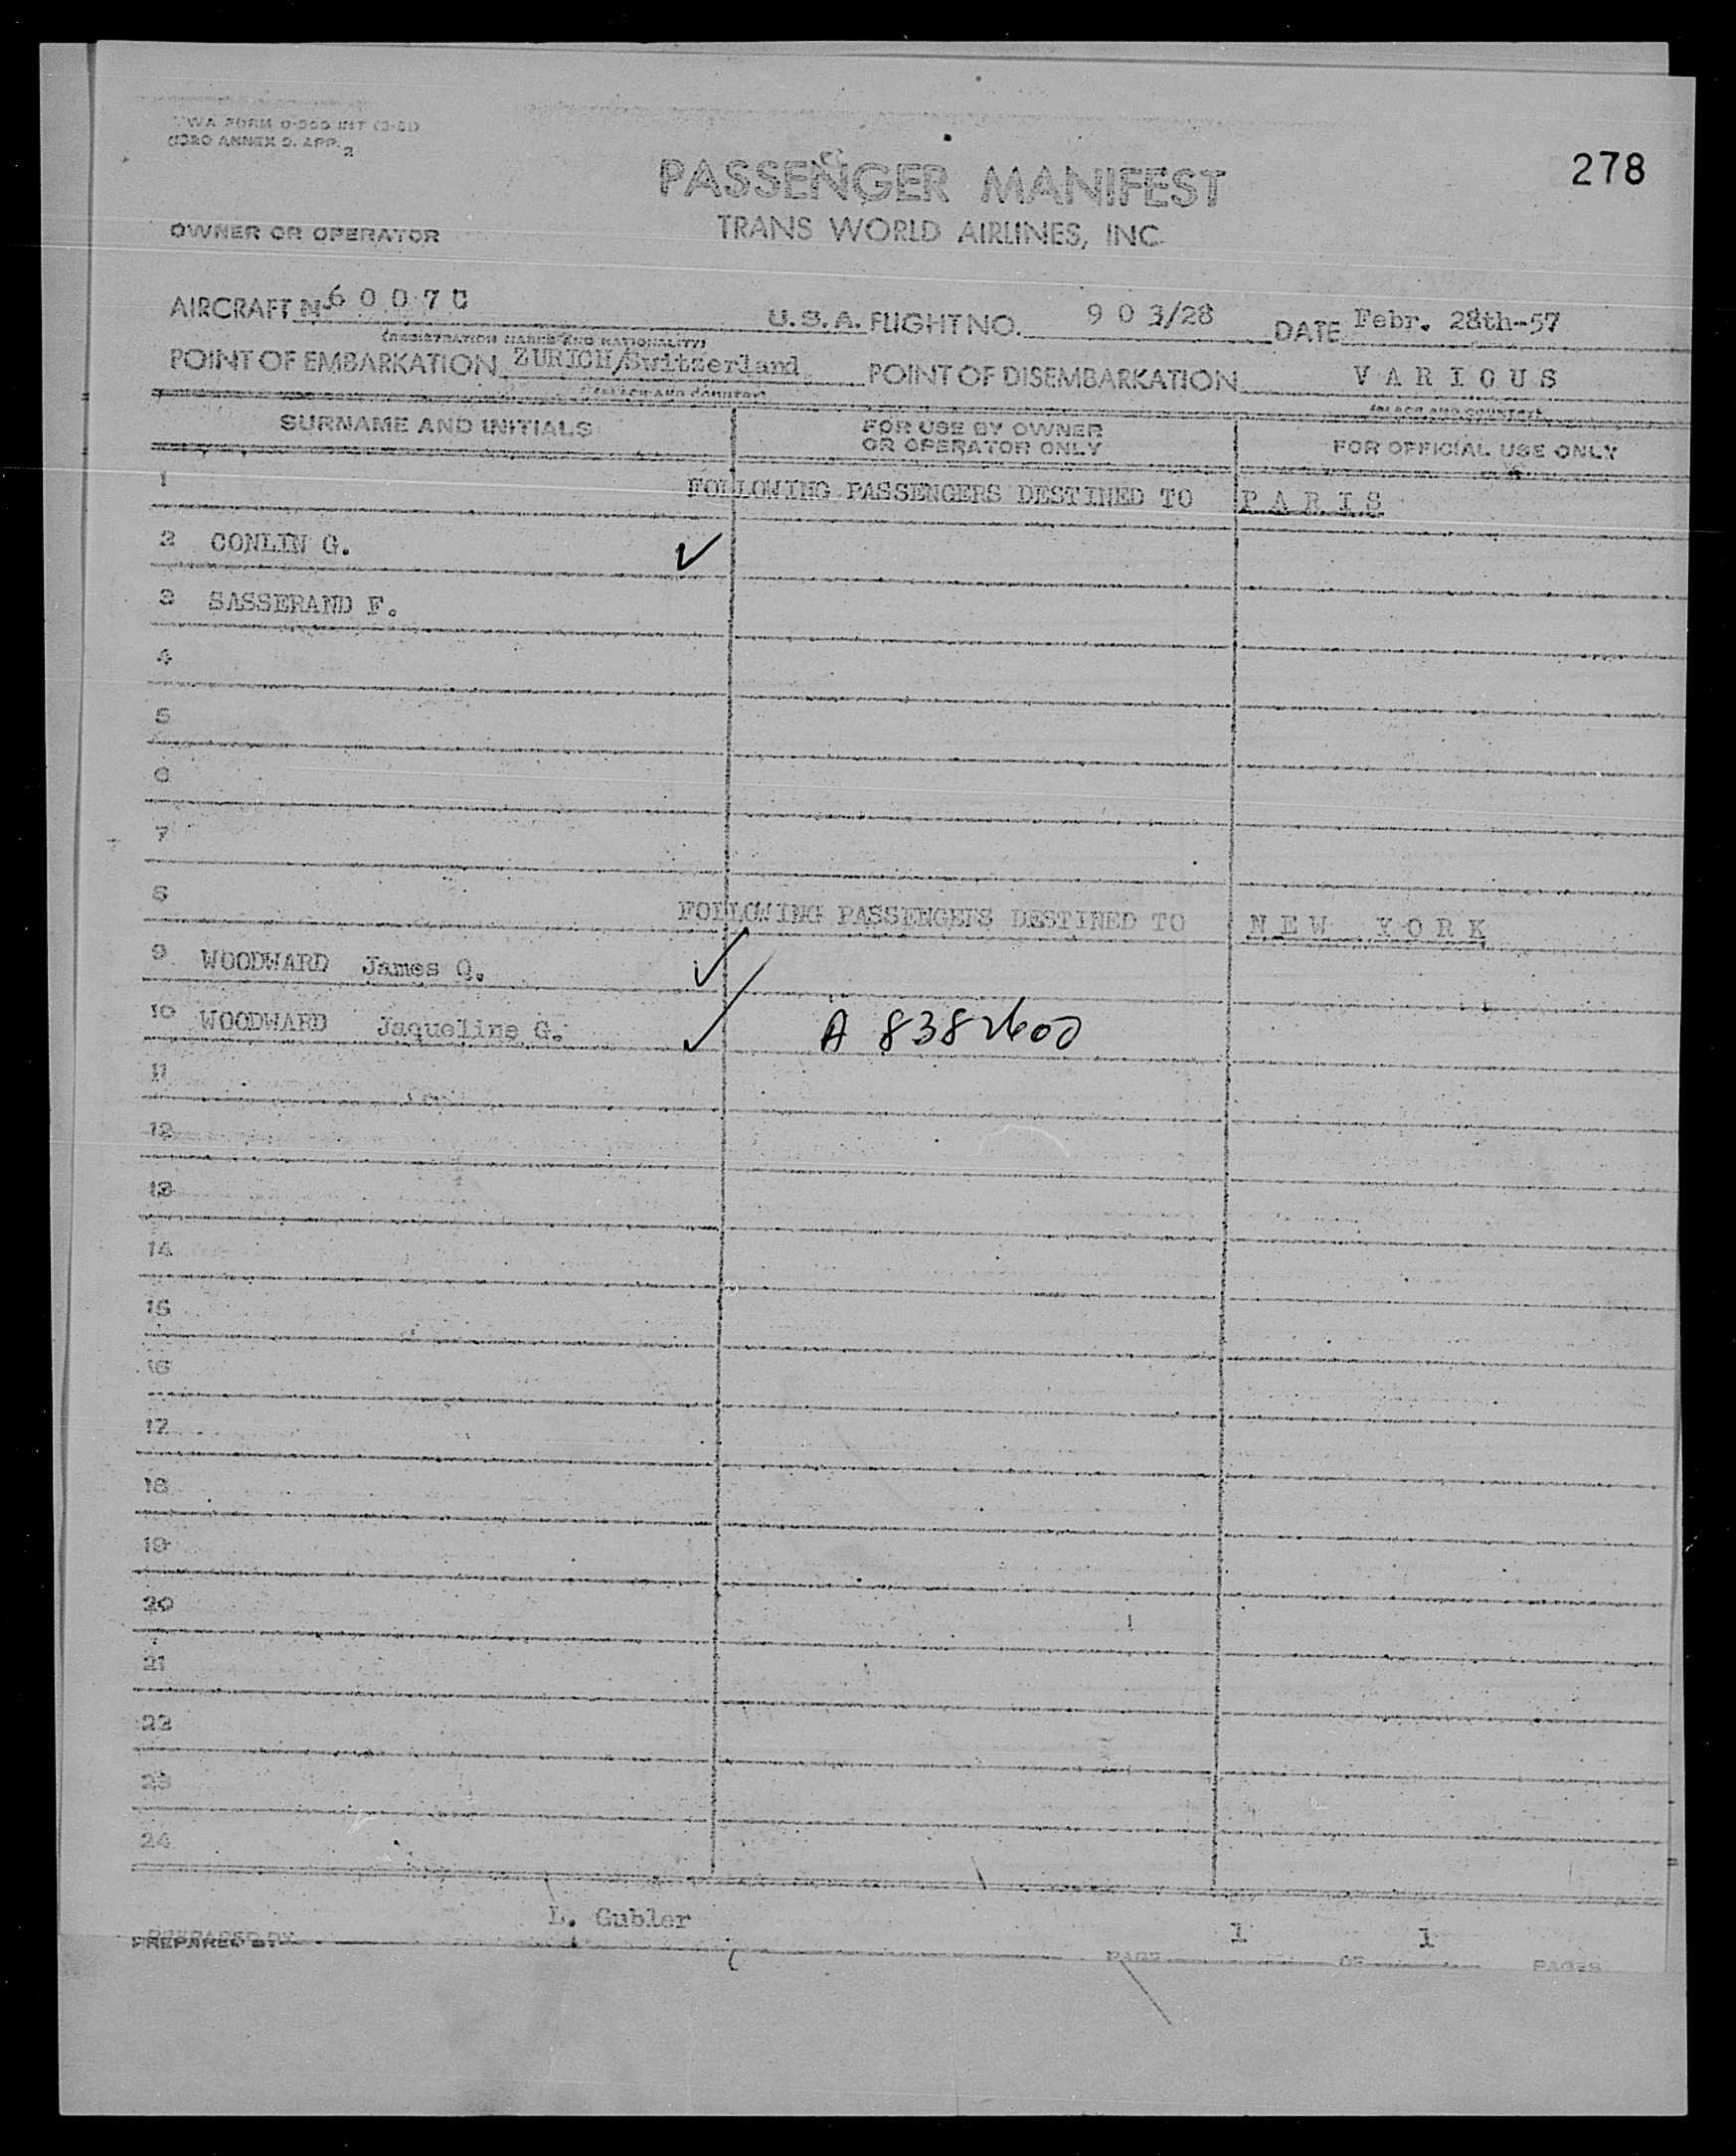 TWA FORM O-355 INT (3-51)
ICAO ANNEX 9. APP. 2
278
PASSENGER MANIFEST
OWNER OR OPERATOR TRANS WORLD AIRLINES, INC.
AIRCRAFT N-6 0 0 7 C U.S.A. FLIGHT NO. 9 0 3/28 DATE Febr. 28th-57
(REGISTRATION MARKS AND NATIONALITY)
POINT OF EMBARKATION ZURICH/Switzerland POINT OF DISEMBARKATION V A R I O U S
(PLACE AND COUNTRY) (PLACE AND COUNTRY)
SURNAME AND INITIALS FOR USE BY OWNER OR OPERATOR ONLY FOR OFFICIAL USE ONLY
1 FOLLOWING PASSENGERS DESTINED TO P A R I S
2 CONLIN G. ✓
3 SASSERAND F.
4
5
6
7
8 FOLLOWING PASSENGERS DESTINED TO N E W Y O R K
9 WOODWARD James Q. ✓
10 WOODWARD Jaqueline G. ✓ A 8382600
11
12
13
14
15
16
17
18
19
20
21
22
23
24
PREPARED BY L. Gubler PAGE 1 OF 1 PAGES